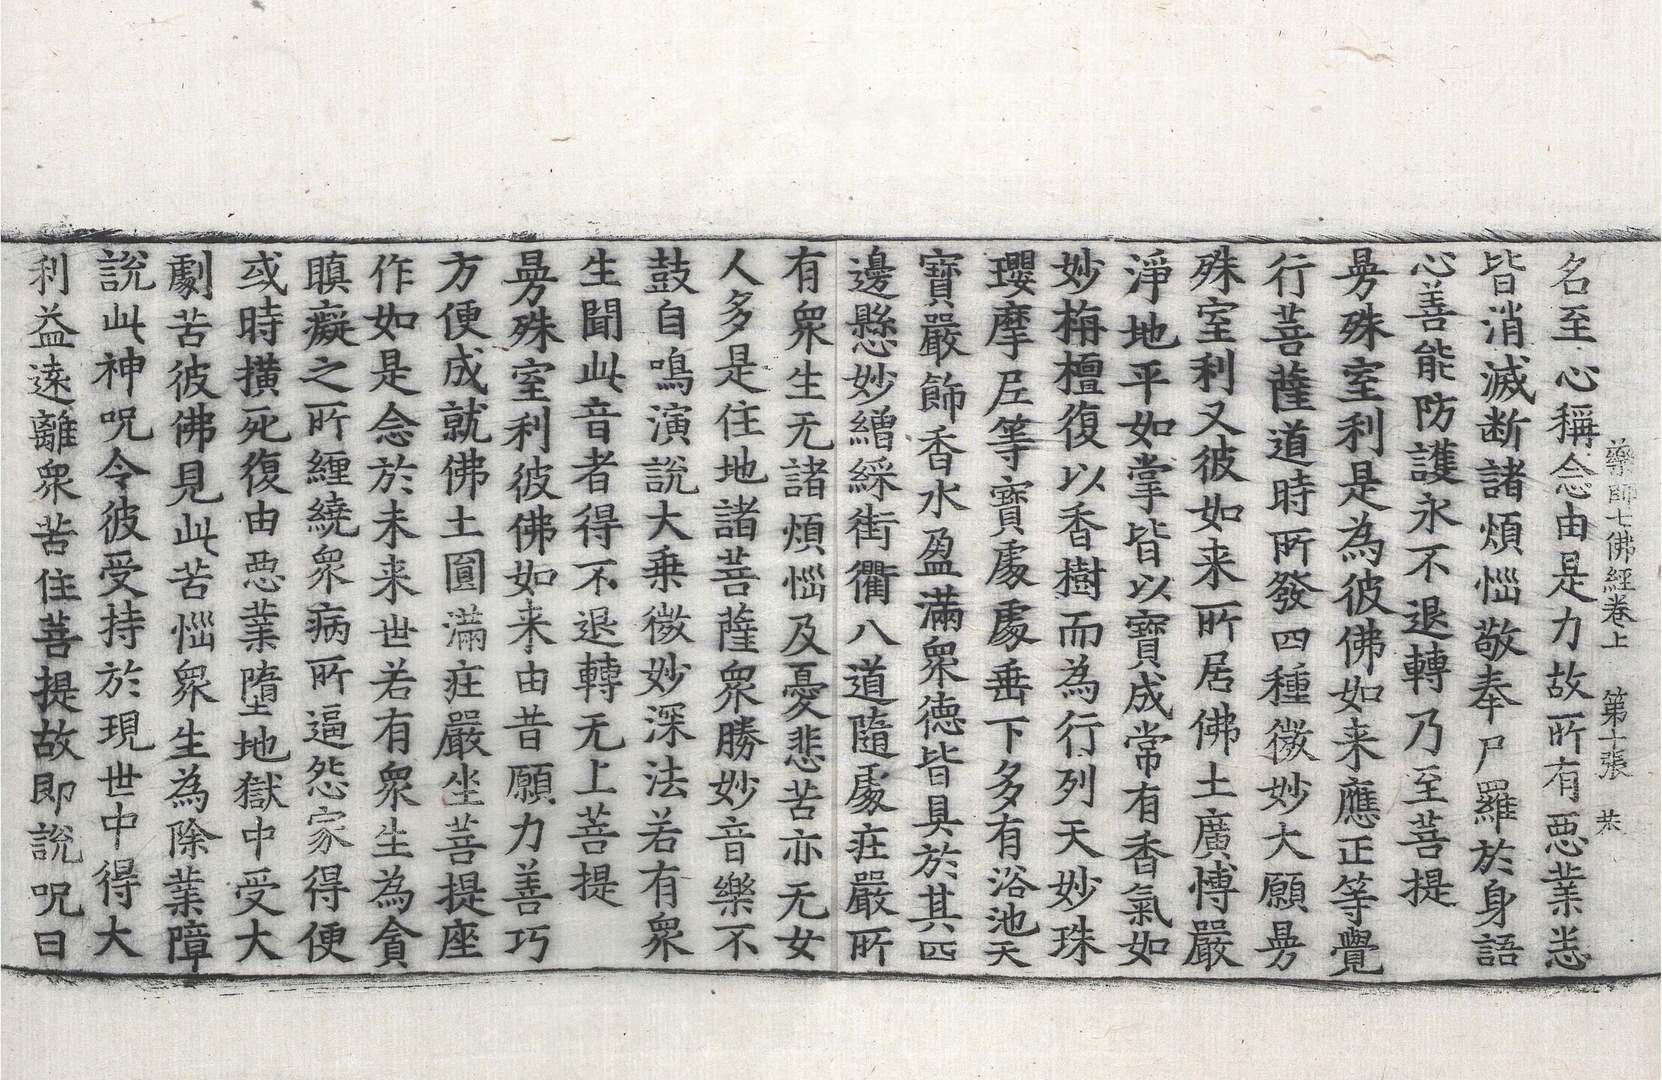 藥師七佛經卷上 第十張 恭
名至心稱念由是力故所有惡業悉
皆消滅断諸煩惱敬奉尸羅於身語
心善能防護永不退轉乃至菩提
曼殊室利是為彼佛如来應正等覺
行菩薩道時所發四種微妙大願曼
殊室利又彼如来所居佛土廣博嚴
淨地平如掌皆以寶成常有香氣如
妙栴檀復以香樹而為行列天妙珠
瓔摩尼等寶處處垂下多有浴池天
寶嚴飾香水盈滿衆德皆具於其四
邊懸妙繒綵街衢八道隨處莊嚴所
有衆生无諸煩惱及憂悲苦亦无女
人多是住地諸菩薩衆勝妙音樂不
鼓自鳴演說大乗微妙深法若有衆
生聞此音者得不退轉无上菩提
曼殊室利彼佛如来由昔願力善巧
方便成就佛土圓滿莊嚴坐菩提座
作如是念於未来世若有衆生為貪
瞋癡之所纏繞衆病所逼怨家得便
或時横死復由惡業墮地獄中受大
劇苦彼佛見此苦惱衆生為除業障
說此神呪令彼受持於現世中得大
利益遠離衆苦住菩提故即說呪曰